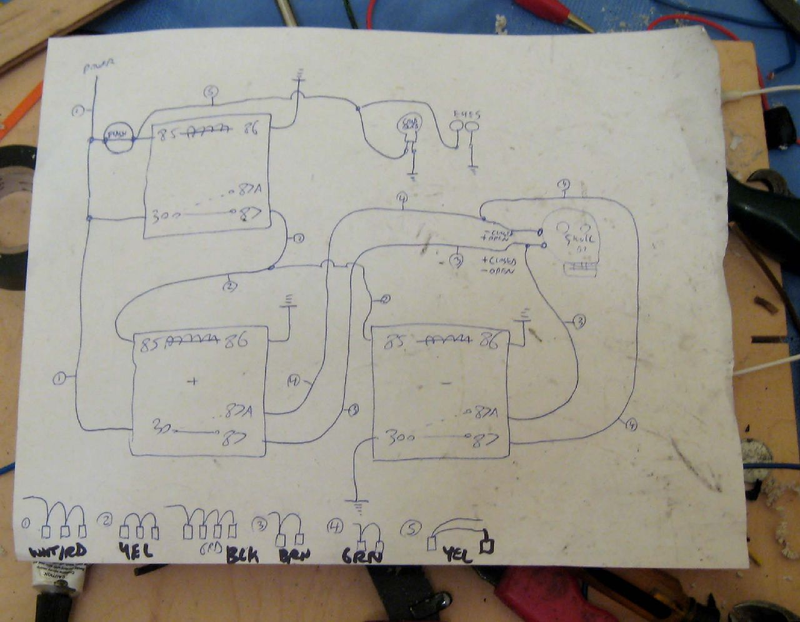 POWER
①
⑤
PUSH
85 86
87A
30 87
EYES
④
②
②
③
⑤
- CLOSED
+ OPEN
SKULL
+ CLOSED
- OPEN
②
③
85 86
+
87A
30 87
①
④
③
85 86
-
87A
30 87
④
① ② ③ ④ ⑤
GRD
WHT/RD YEL BLK BRN GRN YEL